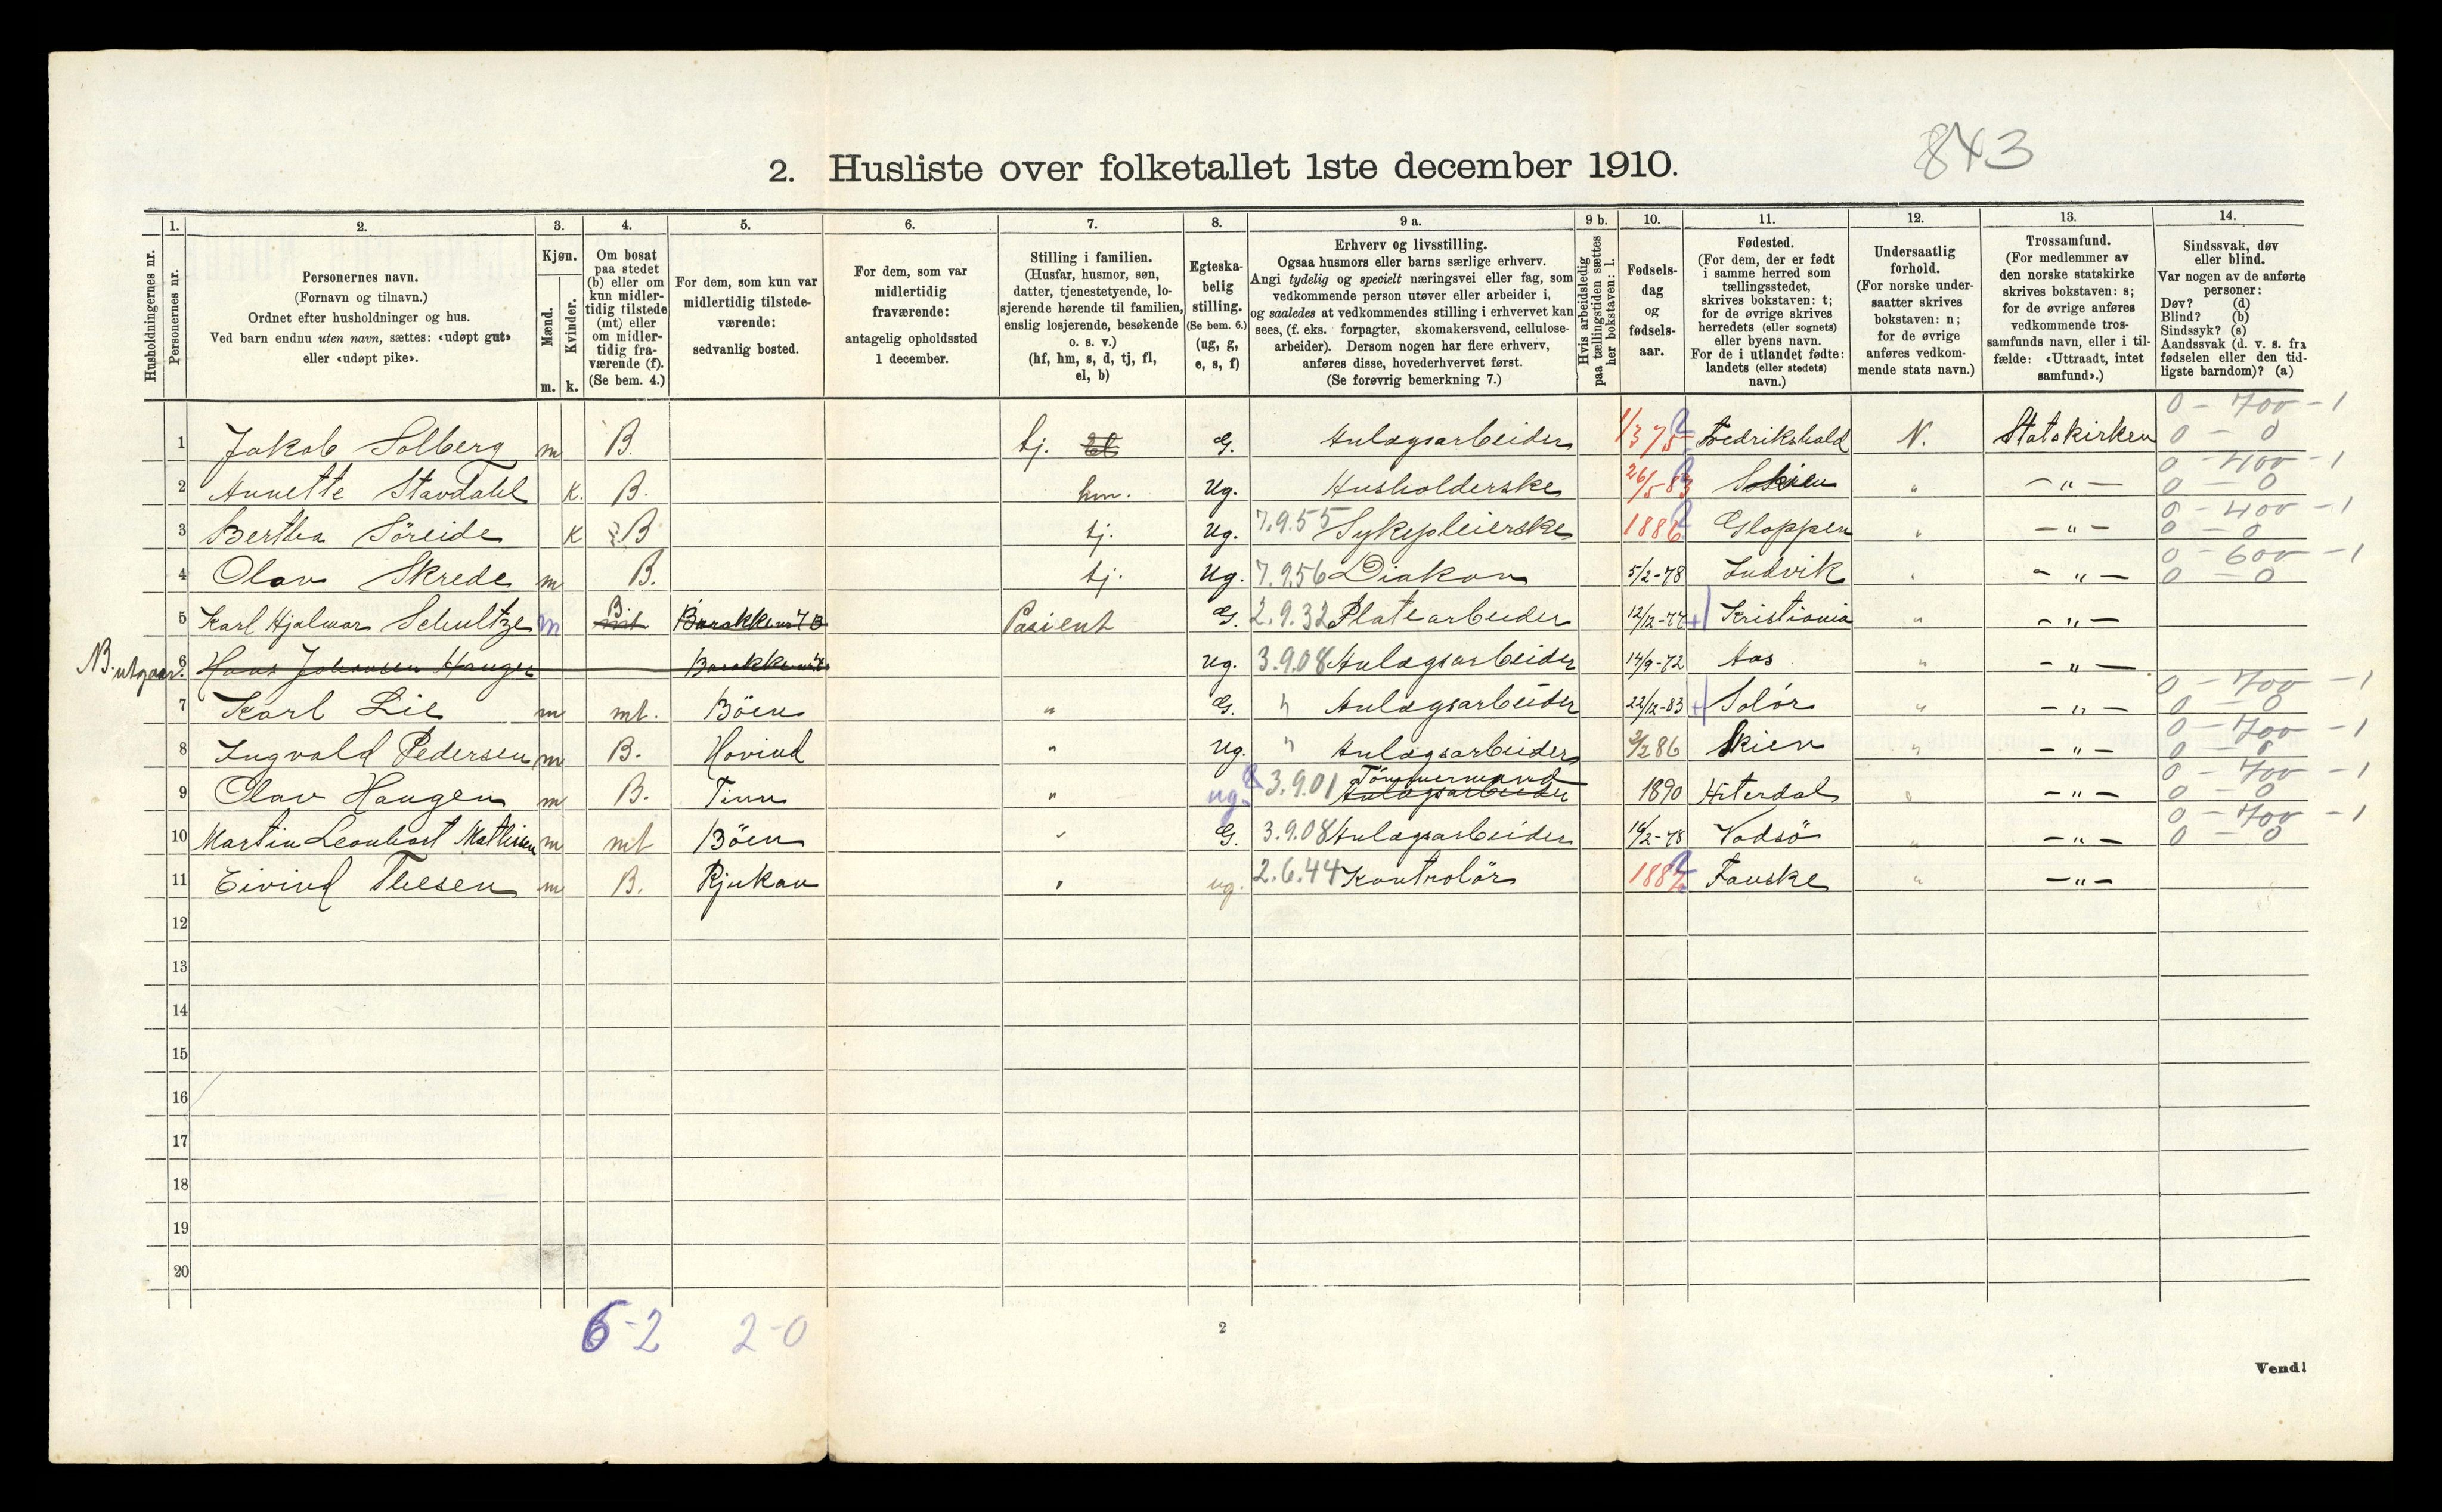 843
2. Husliste over folketallet 1ste december 1910.
Husholdningernes nr.
1. Personernes nr.
2. Personernes navn.
(Fornavn og tilnavn.)
Ordnet efter husholdninger og hus.
Ved barn endnu uten navn, sættes: «udøpt gut»
eller «udøpt pike».
3. Kjøn.
Mænd. m.
Kvinder. k.
4. Om bosat
paa stedet
(b) eller om
kun midler-
tidig tilstede
(mt) eller
om midler-
tidig fra-
værende (f).
(Se bem. 4.)
5. For dem, som kun var
midlertidig tilstede-
værende:
sedvanlig bosted.
6. For dem, som var
midlertidig
fraværende:
antagelig opholdssted
1 december.
7. Stilling i familien.
(Husfar, husmor, søn,
datter, tjenestetyende, lo-
sjerende hørende til familien,
enslig losjerende, besøkende
o. s. v.)
(hf, hm, s, d, tj, fl,
el, b)
8. Egteska-
belig
stilling.
(Se bem. 6.)
(ug, g,
e, s, f)
9 a. Erhverv og livsstilling.
Ogsaa husmors eller barns særlige erhverv.
Angi tydelig og specielt næringsvei eller fag, som
vedkommende person utøver eller arbeider i,
og saaledes at vedkommendes stilling i erhvervet kan
sees, (f. eks. forpagter, skomakersvend, cellulose-
arbeider). Dersom nogen har flere erhverv,
anføres disse, hovederhvervet først.
(Se forøvrig bemerkning 7.)
9 b. Hvis arbeidsledig
paa tællingstiden sættes
her bokstaven: l.
10. Fødsels-
dag
og
fødsels-
aar.
11. Fødested.
(For dem, der er født
i samme herred som
tællingsstedet,
skrives bokstaven: t;
for de øvrige skrives
herredets (eller sognets)
eller byens navn.
For de i utlandet fødte:
landets (eller stedets)
navn.)
12. Undersaatlig
forhold.
(For norske under-
saatter skrives
bokstaven: n;
for de øvrige
anføres vedkom-
mende stats navn.)
13. Trossamfund.
(For medlemmer av
den norske statskirke
skrives bokstaven: s;
for de øvrige anføres
vedkommende tros-
samfunds navn, eller i til-
fælde: «Uttraadt, intet
samfund».)
14. Sindssvak, døv
eller blind.
Var nogen av de anførte
personer:
Døv? (d)
Blind? (b)
Sindssyk? (s)
Aandssvak (d. v. s. fra
fødselen eller den tid-
ligste barndom)? (a)
0 - 700 - 1
1 Jakob Solberg m B. tj. G. Anlægsarbeider 1/3 75 Fredrikshald N. Statskirken 0 - 0
0 - 400 - 1
2 Annette Stavdahl K. B. hm. Ug. Husholderske 26/5-83 Skien " - " - 0 - 0
0 - 400 - 1
3 Bertha Söreide K B tj. Ug. 7.9.55 Sykepleierske 1886 Gloppen " - " - 0 - 0
0 - 600 - 1
4 Olav Skrede m B. tj. Ug. 7.9.56 Diakon 5/2-78 Indvik " - " - 0 - 0
5 Karl Hjalmar Schultze m B. mt Barakke nr 7B Pasient G. 2.9.32 Platearbeider 12/12-77 + Kristiania " - " -
NB. utgaar. 6 Hans Johansen Haugen Barakke Ug. 3.9.08 Anlægsarbeider 14/9-72 Aas " - " -
0 - 700 - 1
7 Karl Lie m mt. Böen " G. " Anlægsarbeider 22/12-83 + Solör " - " - 0 - 0
0 - 700 - 1
8 Ingvald Pedersen m B. Hovind " Ug. " Anlægsarbeider 2/2 86 Skien " - " - 0 - 0
Tömmermand 0 - 700 - 1
9 Olav Haugen m B. Tinn " ug. 3.9.01 Anlægsarbeider 1890 Hiterdal " - " - 0 - 0
0 - 700 - 1
10 Martin Leonhart Mathisen m mt Böen " G. 3.9.08 Anlægsarbeider 16/2-78 Vadsö " - " - 0 - 0
11 Eivind Thesen m B. Rjukan " ug. 2.6.44 Kontrolör 1882 Fauske " - " -
12
13
14
15
16
17
18
19
20
6-2 2-0
2
Vend!